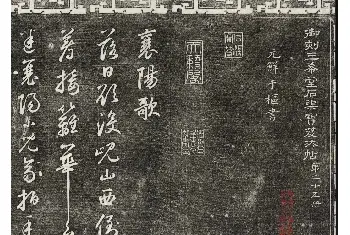 御刻三希堂石渠寶笈法帖第二十五冊
元鮮于樞書
襄陽歌
落日欲沒峴山西倒
著接䍦花下
迷襄陽小兒齊拍手